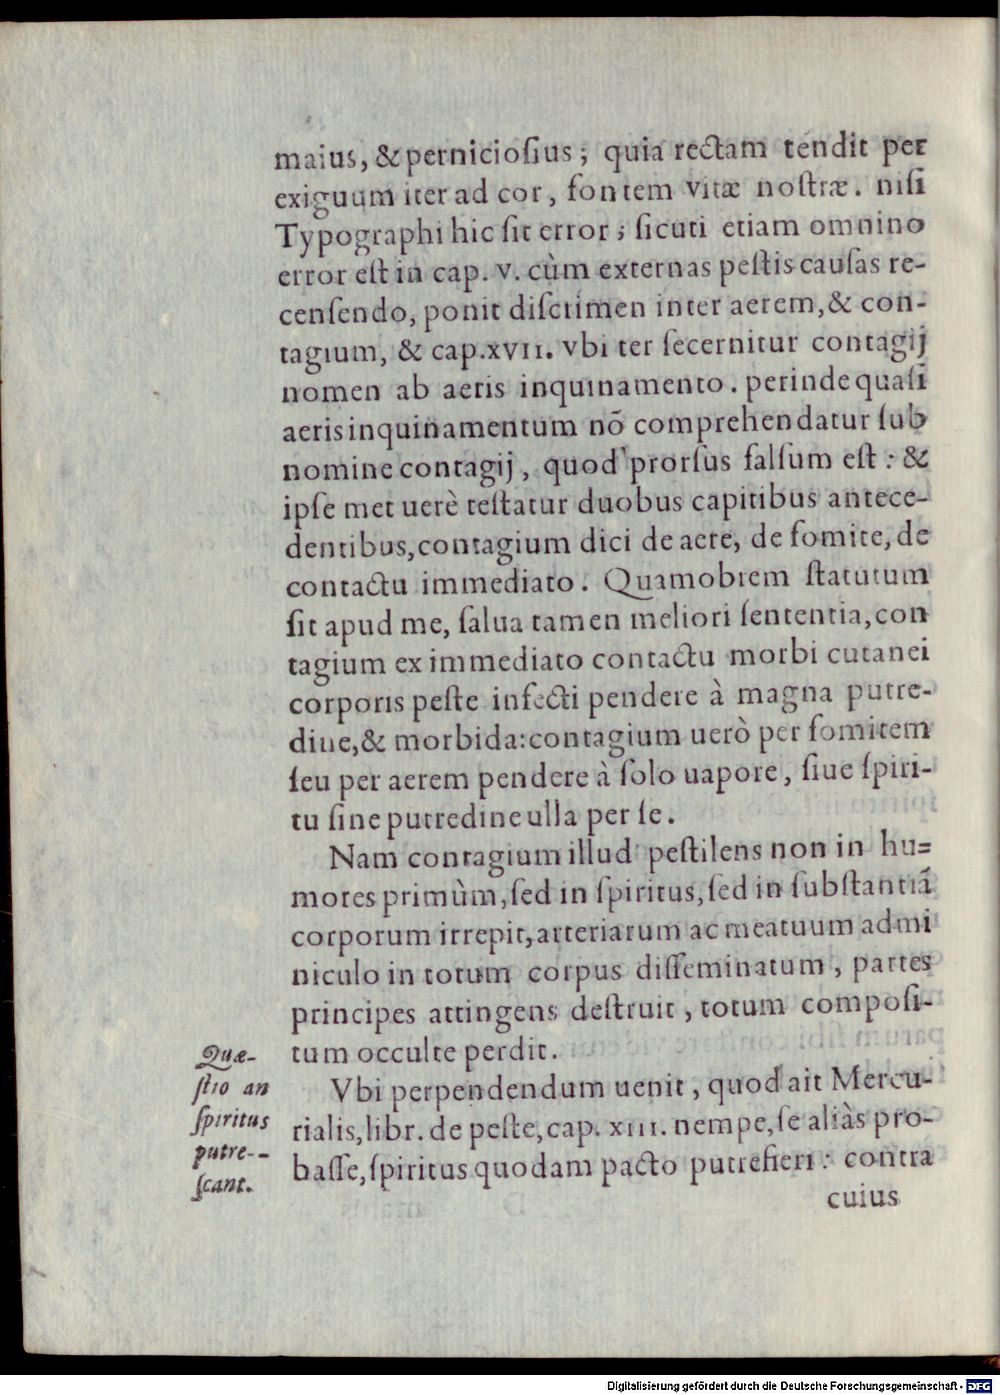 maius, & perniciosius; quia rectam tendit per
exiguum iter ad cor, fontem vitæ nostræ. nisi
Typographi hic sit error; sicuti etiam omnino
error est in cap. v. cùm externas pestis causas re-
censendo, ponit discrimen inter aerem, & con-
tagium, & cap. xvii. vbi ter secernitur contagij
nomen ab aeris inquinamento. perinde quasi
aeris inquinamentum nõ comprehendatur sub
nomine contagij, quod prorsus falsum est: &
ipse met uerè testatur duobus capitibus antece-
dentibus, contagium dici de aere, de fomite, de
contactu immediato. Quamobrem statutum
sit apud me, salua tamen meliori sententia, con
tagium ex immediato contactu morbi cutanei
corporis peste infecti pendere à magna putre-
dine, & morbida: contagium uerò per fomitem
seu per aerem pendere à solo uapore, siue spiri-
tu sine putredine ulla per se.
Nam contagium illud pestilens non in hu=
mores primùm, sed in spiritus, sed in substantiã
corporum irrepit, arteriarum ac meatuum admi
niculo in totum corpus disseminatum, partes
principes attingens destruit, totum composi-
tum occulte perdit.
Vbi perpendendum uenit, quod ait Mercu-
rialis, libr. de peste, cap. xiii. nempe, se aliàs pro-
basse, spiritus quodam pacto putrefieri: contra
cuius
Quæ-
stio an
spiritus
putre--
scant.
Digitalisierung gefördert durch die Deutsche Forschungsgemeinschaft - DFG